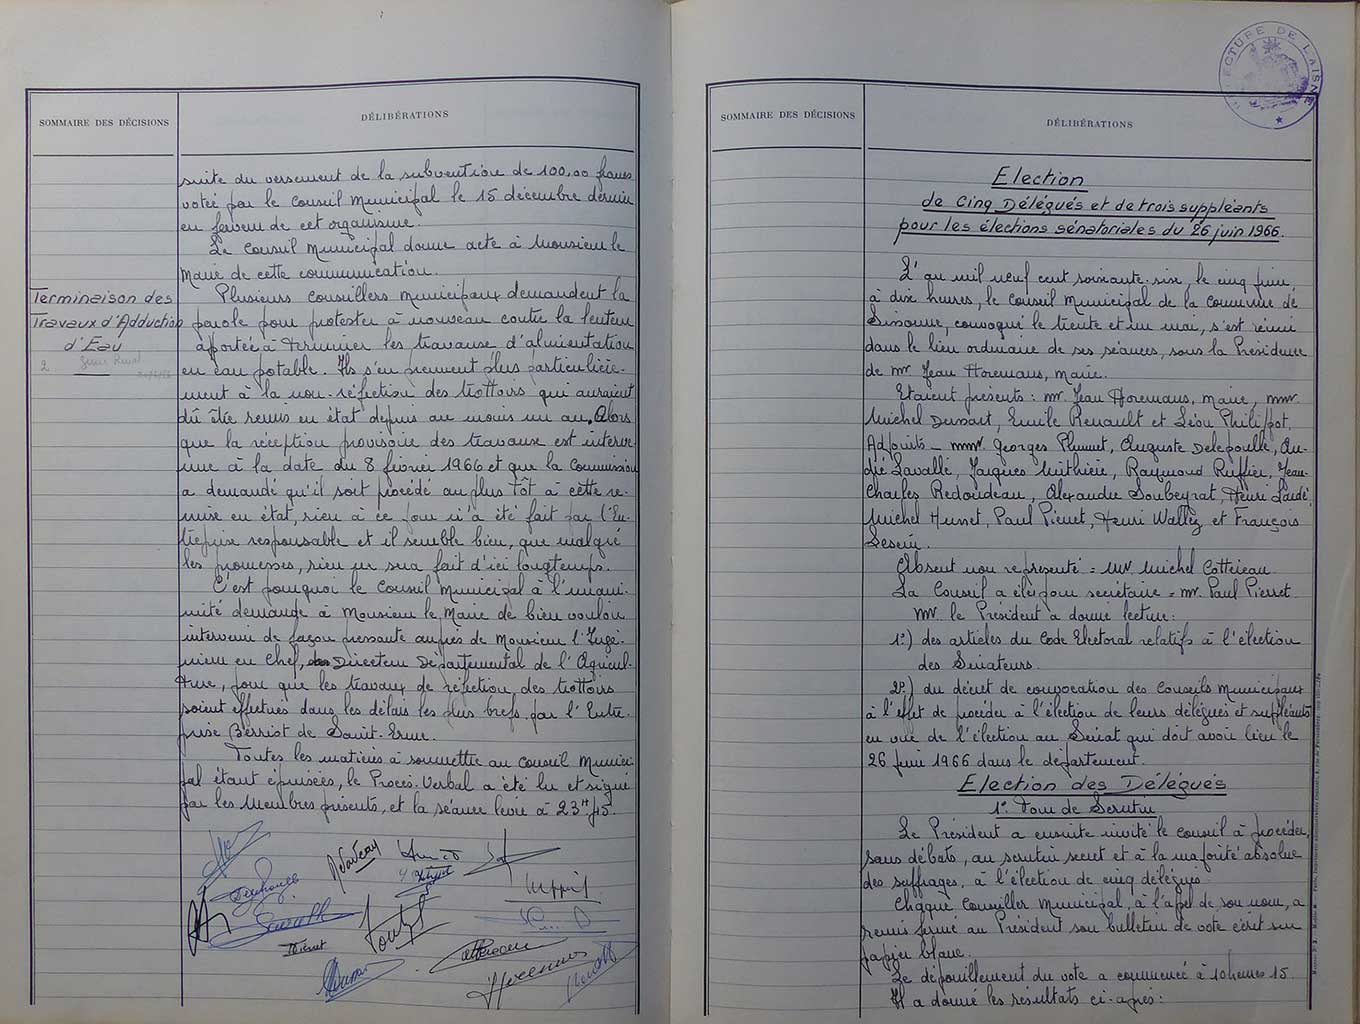 SOMMAIRE DES DÉCISIONS
DÉLIBÉRATIONS
suite du versement de la subvention de 100,00 francs
votée par le Conseil Municipal le 15 décembre dernier
en faveur de cet organisme.
Le Conseil Municipal donne acte à Monsieur le
Maire de cette communication.
Terminaison des
Travaux d'Adduction
d'Eau
2
Plusieurs Conseillers Municipaux demandent la
parole pour protester à nouveau contre la lenteur
apportée à terminer les travaux d'alimentation
en eau potable. Ils s'en prennent plus particulière-
ment à la non-réfection des trottoirs qui auraient
dû être remis en état depuis au moins un an. Alors
que la réception provisoire des travaux est interve-
nue à la date du 8 février 1966 et que la Commission
a demandé qu'il soit procédé au plus tôt à cette re-
mise en état, rien à ce jour n'a été fait par l'En-
treprise responsable et il semble bien, que malgré
les promesses, rien ne sera fait d'ici longtemps.
C'est pourquoi le Conseil Municipal à l'unani-
mité demande à Monsieur le Maire de bien vouloir
intervenir de façon pressante auprès de Monsieur l'Ingé-
nieur en Chef, Directeur Départemental de l'Agricul-
ture, pour que les travaux de réfection des trottoirs
soient effectués dans les délais les plus brefs par l'Entre-
prise Berriot de Saint-Erme.
Toutes les matières à soumettre au Conseil Munici-
pal étant épuisées, le Procès-Verbal a été lu et signé
par les Membres présents, et la séance levée à 23H 45.
SOMMAIRE DES DÉCISIONS
DÉLIBÉRATIONS
PRÉFECTURE DE L'AISNE
Election
de Cinq Délégués et de trois suppléants
pour les élections sénatoriales du 26 juin 1966.
L'an mil neuf cent soixante-six, le cinq juin,
à dix heures, le Conseil Municipal de la commune de
Sissonne, convoqué le trente et un mai, s'est réuni
dans le lieu ordinaire de ses séances, sous la Présidence
de Mr. Jean Horemans, Maire.
Etaient présents : Mr. Jean Horemans, Maire, MM.
Michel Dussart, Emile Renault et Léon Philippot,
Adjoints - MM. Georges Plumet, Auguste Delepoulle, An-
dré Lavallé, Jacques Mithière, Raymond Ruffier, Jean-
Charles Redoideau, Alexandre Soubeyrat, Henri Laudé,
Michel Hunet, Paul Pierret, Henri Wallez et François
Seseur.
Absent non représenté = Mr Michel Cottereau.
Le Conseil a élu pour secrétaire = Mr. Paul Pierret.
Mr. le Président a donné lecture :
1°) des articles du Code Electoral relatifs à l'élection
des Sénateurs.
2°) du décret de convocation des Conseils Municipaux
à l'effet de procéder à l'élection de leurs délégués et suppléants
en vue de l'élection au Sénat qui doit avoir lieu le
26 Juin 1966 dans le département.
Election des Délégués
1er Tour de Scrutin
Le Président a ensuite invité le Conseil à procéder,
sans débats, au scrutin secret et à la majorité absolue
des suffrages, à l'élection de cinq délégués.
Chaque Conseiller Municipal, à l'appel de son nom, a
remis fermé au Président son bulletin de vote écrit sur
papier blanc.
Le dépouillement du vote a commencé à 10 heures 15.
Il a donné les résultats ci-après :